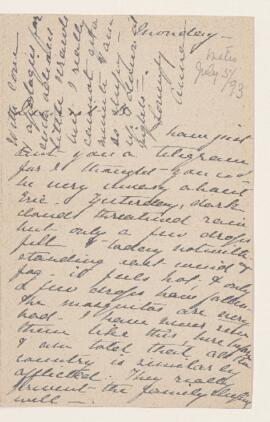 Monday –
July 3/
93
I have just
sent you a telegram
for I thought you would
be very uneasy about
Eric. Yesterday, dark
clouds threatened rain
but only a few drops
fell & today notwith
standing east wind &
fog it feels hot & only
a few drops have fallen.
The mosquitos are very
bad. I have never seen
them like this here before
& am told that all the
country is similarly
afflicted. They really
prevent the family sleeping
well –
With
apologies for
such
little
but I really
cannot
minute I am
so sleepy